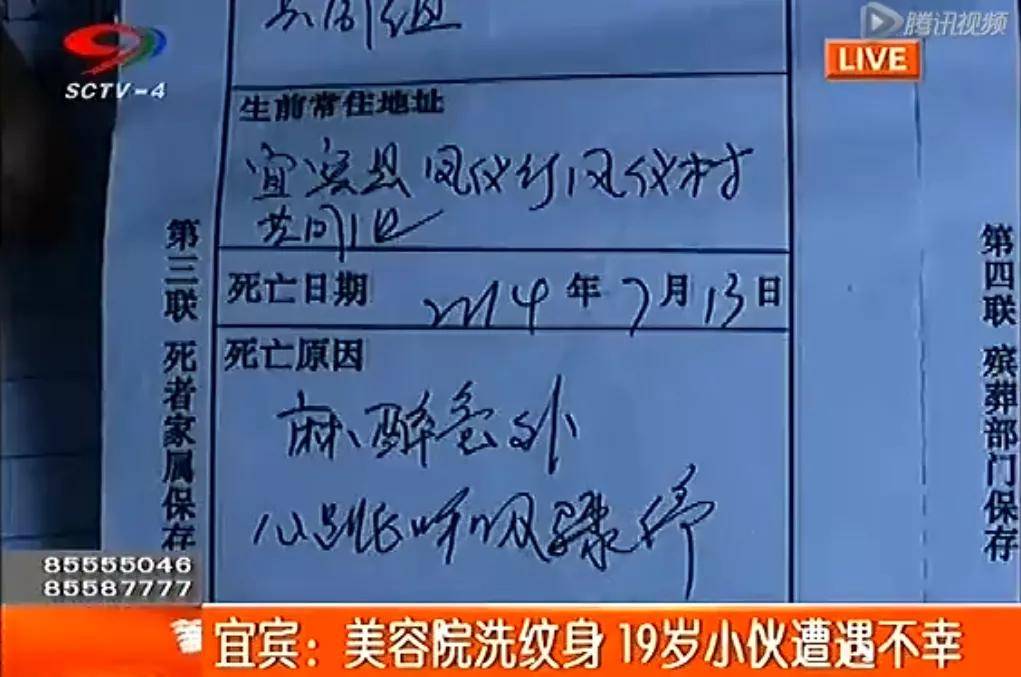 腾讯视频
SCTV-4
LIVE
生前常住地址
宜宾县凤仪乡凤仪村
共同组
死亡日期 2014年7月13日
死亡原因
麻醉意外
心跳呼吸骤停
第三联 死者家属保存
第四联 殡葬部门保存
85555046
85587777
宜宾：美容院洗纹身 19岁小伙遭遇不幸